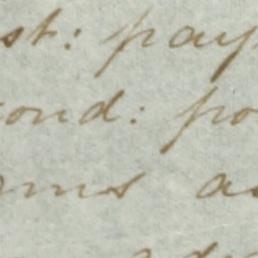 st: pay
ond: po
oms as